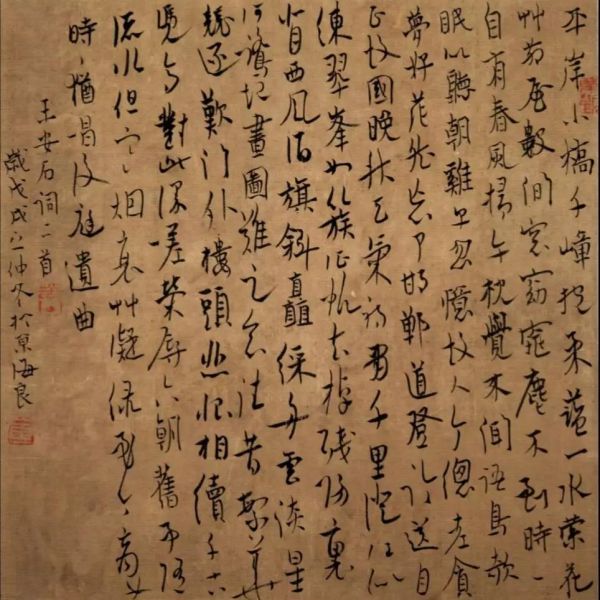 平岸小橋千嶂抱柔藍一水縈花
艸茅屋數間窓窈窕塵不到時〻
自有春風掃午枕覺來聞語鳥欹
眠似聽朝雞早忽憶故人今總老貪
夢好茫然忘了邯鄲道登臨送目
正故國晚秋天氣初肅千里澄江似
練翠峯如簇征帆去棹殘陽裏
背西風酒旗斜矗綵舟雲淡星
河鷺起畫圖難足念往昔繁華
競逐歎門外樓頭悲恨相續千古
憑高對此漫嗟榮辱六朝舊事隨
流水但寒烟衰艸凝綠至今商女
時〻猶唱後庭遺曲
王安石詞二首
歲戊戌之仲冬於京海良